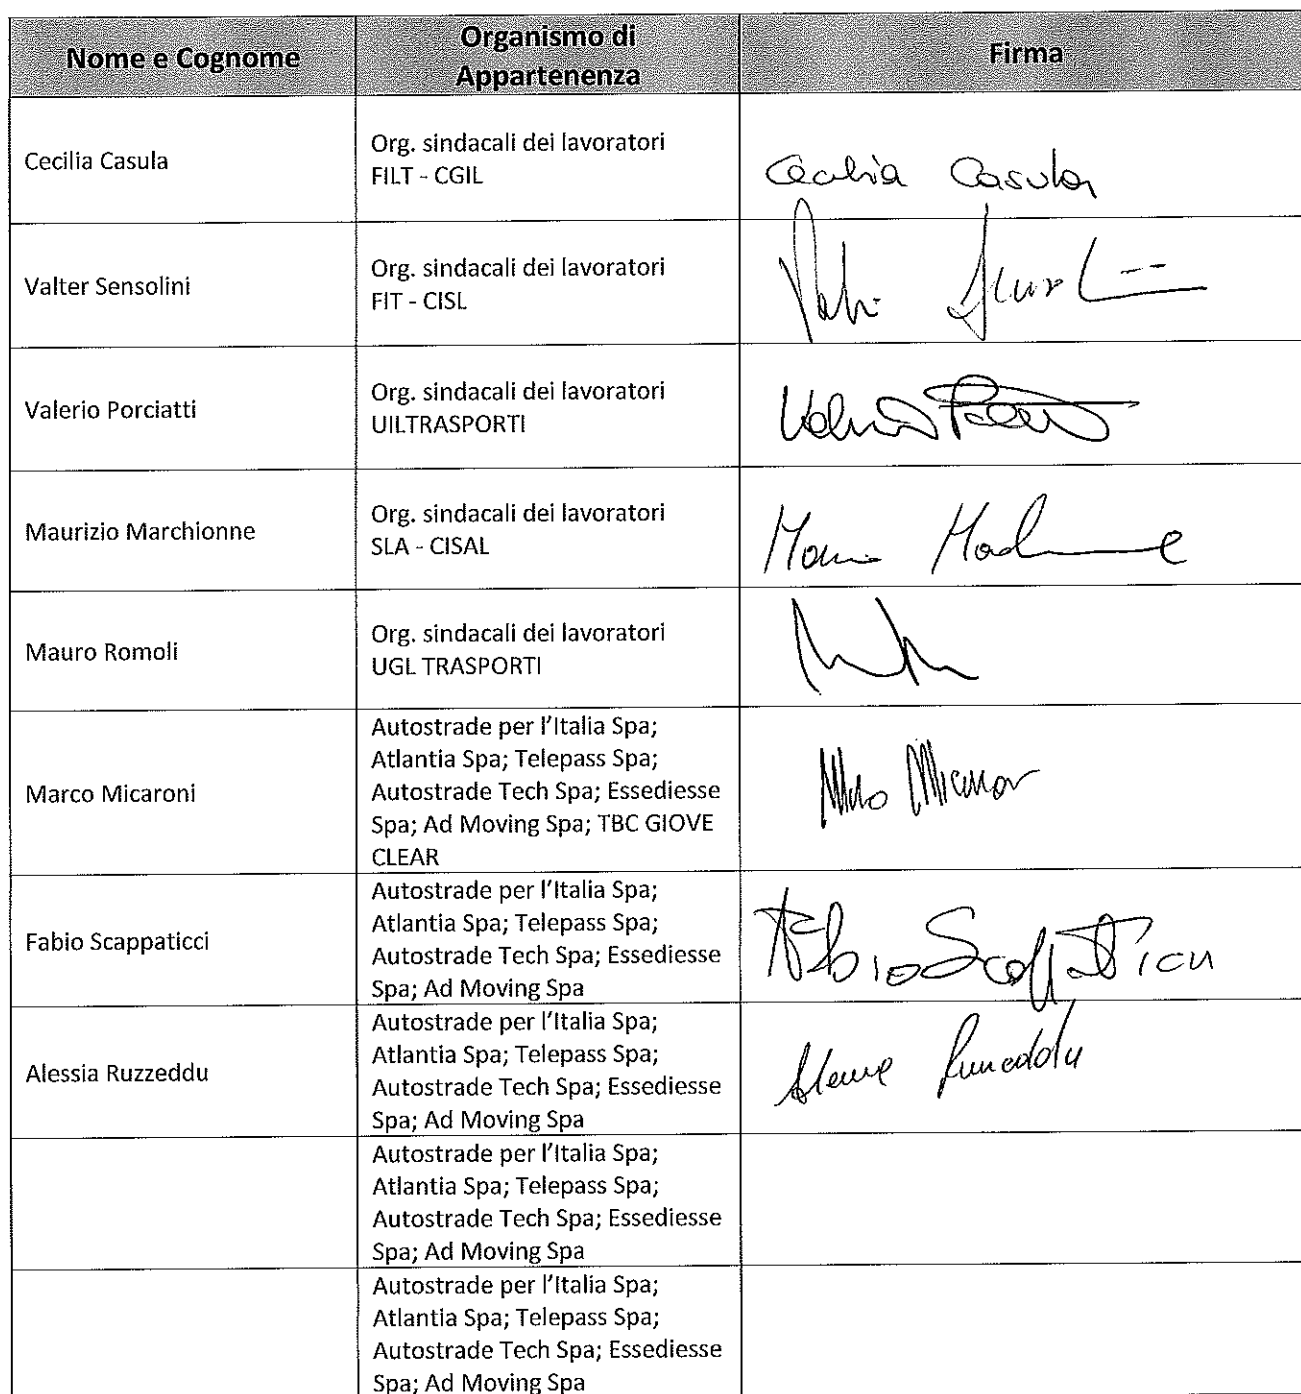 Nome e Cognome
Organismo di
Appartenenza
Firma
Cecilia Casula
Org. sindacali dei lavoratori
FILT - CGIL
Cecilia Casula
Valter Sensolini
Org. sindacali dei lavoratori
FIT - CISL
Valerio Porciatti
Org. sindacali dei lavoratori
UILTRASPORTI
Maurizio Marchionne
Org. sindacali dei lavoratori
SLA - CISAL
Mauro Romoli
Org. sindacali dei lavoratori
UGL TRASPORTI
Marco Micaroni
Autostrade per l'Italia Spa;
Atlantia Spa; Telepass Spa;
Autostrade Tech Spa; Essediesse
Spa; Ad Moving Spa; TBC GIOVE
CLEAR
Fabio Scappaticci
Autostrade per l'Italia Spa;
Atlantia Spa; Telepass Spa;
Autostrade Tech Spa; Essediesse
Spa; Ad Moving Spa
Fabio Scappaticci
Alessia Ruzzeddu
Autostrade per l'Italia Spa;
Atlantia Spa; Telepass Spa;
Autostrade Tech Spa; Essediesse
Spa; Ad Moving Spa
Autostrade per l'Italia Spa;
Atlantia Spa; Telepass Spa;
Autostrade Tech Spa; Essediesse
Spa; Ad Moving Spa
Autostrade per l'Italia Spa;
Atlantia Spa; Telepass Spa;
Autostrade Tech Spa; Essediesse
Spa; Ad Moving Spa